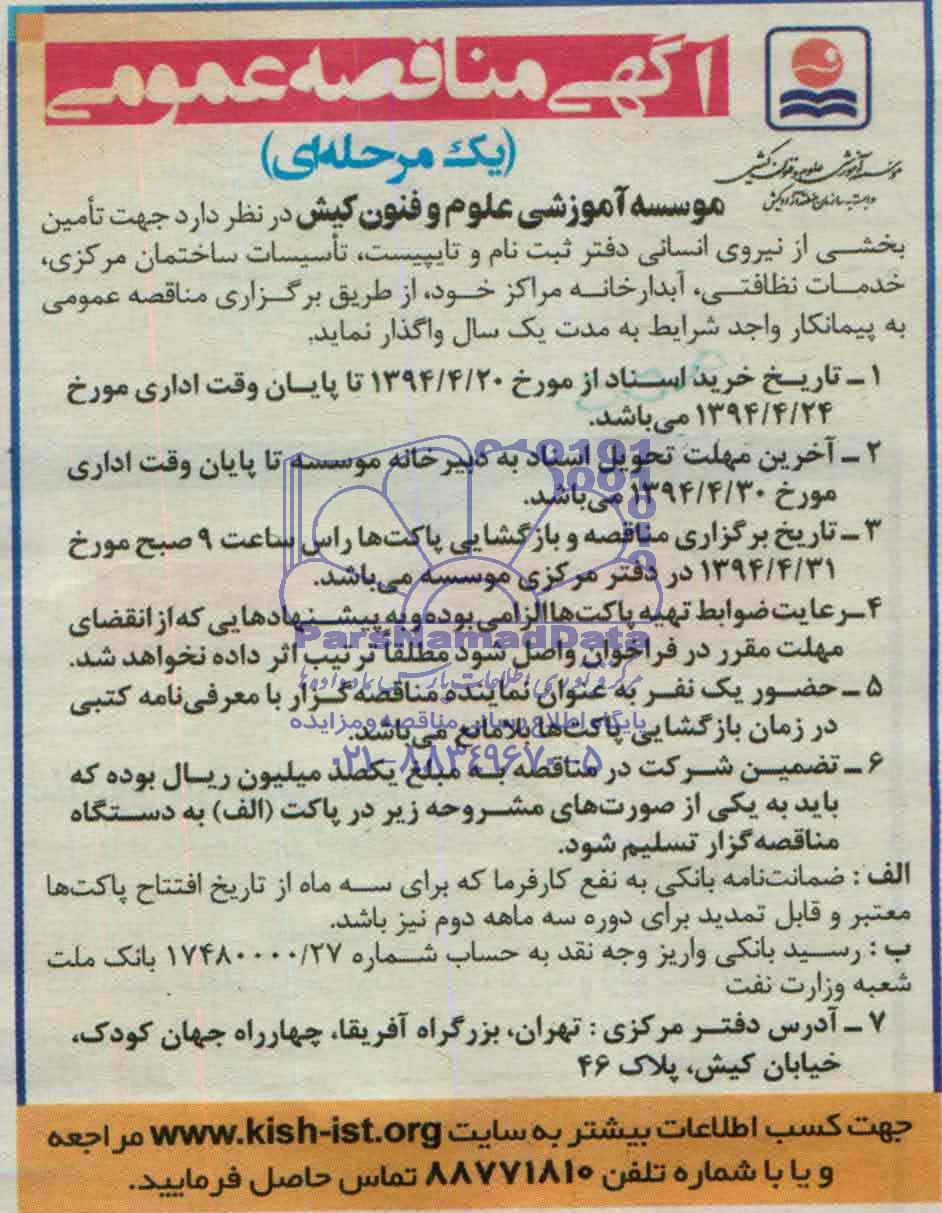 آگهی مناقصه عمومی
(یک مرحله‌ای)
موسسه آموزشی علوم و فنون کیش
وابسته به سازمان منطقه آزاد کیش
موسسه آموزشی علوم و فنون کیش در نظر دارد جهت تأمین
بخشی از نیروی انسانی دفتر ثبت نام و تایپیست، تأسیسات ساختمان مرکزی،
خدمات نظافتی، آبدارخانه مراکز خود، از طریق برگزاری مناقصه عمومی
به پیمانکار واجد شرایط به مدت یک سال واگذار نماید.
۱ ـ تاریخ خرید اسناد از مورخ ۱۳۹۴/۴/۲۰ تا پایان وقت اداری مورخ
۱۳۹۴/۴/۲۴ می‌باشد.
۲ ـ آخرین مهلت تحویل اسناد به دبیرخانه موسسه تا پایان وقت اداری
مورخ ۱۳۹۴/۴/۳۰ می‌باشد.
۳ ـ تاریخ برگزاری مناقصه و بازگشایی پاکت‌ها راس ساعت ۹ صبح مورخ
۱۳۹۴/۴/۳۱ در دفتر مرکزی موسسه می‌باشد.
۴ـ رعایت ضوابط تهیه پاکت‌ها الزامی بوده و به پیشنهادهایی که از انقضای
مهلت مقرر در فراخوان واصل شود مطلقاً ترتیب اثر داده نخواهد شد.
۵ ـ حضور یک نفر به عنوان نماینده مناقصه‌گزار با معرفی‌نامه کتبی
در زمان بازگشایی پاکت‌ها بلامانع می‌باشد.
۶ ـ تضمین شرکت در مناقصه به مبلغ یکصد میلیون ریال بوده که
باید به یکی از صورت‌های مشروحه زیر در پاکت (الف) به دستگاه
مناقصه‌گزار تسلیم شود.
الف : ضمانت‌نامه بانکی به نفع کارفرما که برای سه ماه از تاریخ افتتاح پاکت‌ها
معتبر و قابل تمدید برای دوره سه ماهه دوم نیز باشد.
ب : رسید بانکی واریز وجه نقد به حساب شماره ۱۷۴۸۰۰۰۰/۲۷ بانک ملت
شعبه وزارت نفت
۷ ـ آدرس دفتر مرکزی : تهران، بزرگراه آفریقا، چهارراه جهان کودک،
خیابان کیش، پلاک ۴۶
جهت کسب اطلاعات بیشتر به سایت www.kish-ist.org مراجعه
و یا با شماره تلفن ۸۸۷۷۱۸۱۰ تماس حاصل فرمایید.
ParsNamadData
پایگاه اطلاع رسانی مناقصه و مزایده
۰۲۱-۸۸۳۴۹۶۷۰-۵